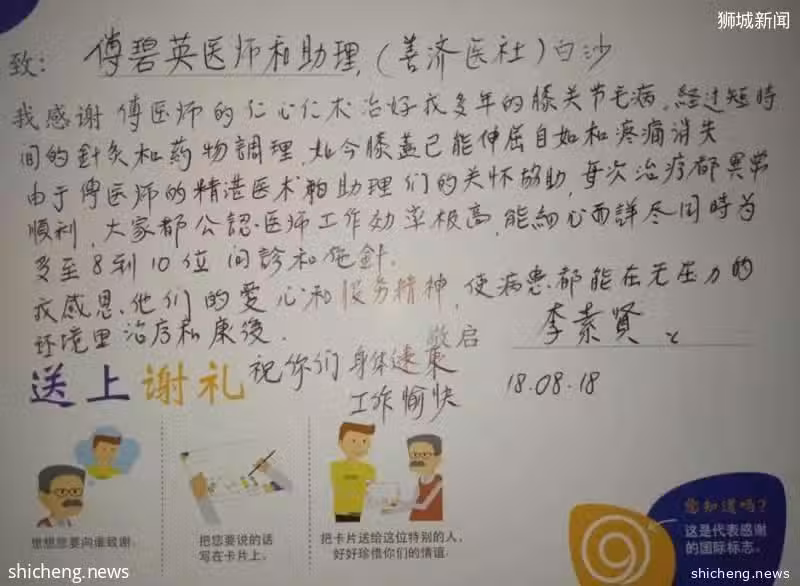 狮城新闻
致: 傅碧英医师和助理,(善济医社)白沙
我感谢 傅医师的仁心仁术治好我多年的膝关节毛病。經过短時
间的針灸和药物調理,如今膝蓋已能伸屈自如和疼痛消失
由于傅医师的精湛医术和助理们的关怀協助,每次治疗都異常
順利,大家都公認医师工作効率极高,能細心而詳尽同時为
多至8到10位问診和施針.
我感恩他们的愛心和服务精神,使病患都能在无压力的
环境里治疗和康復.
敬启 李素賢
送上谢礼
祝你们身体速
工作愉快
18.08.18
想想您要向谁致谢。
把您要说的话
写在卡片上。
把卡片送给这位特别的人,
好好珍惜你们的情谊。
您知道吗?
这是代表感谢
的国际标志。
shicheng.news
shicheng.news